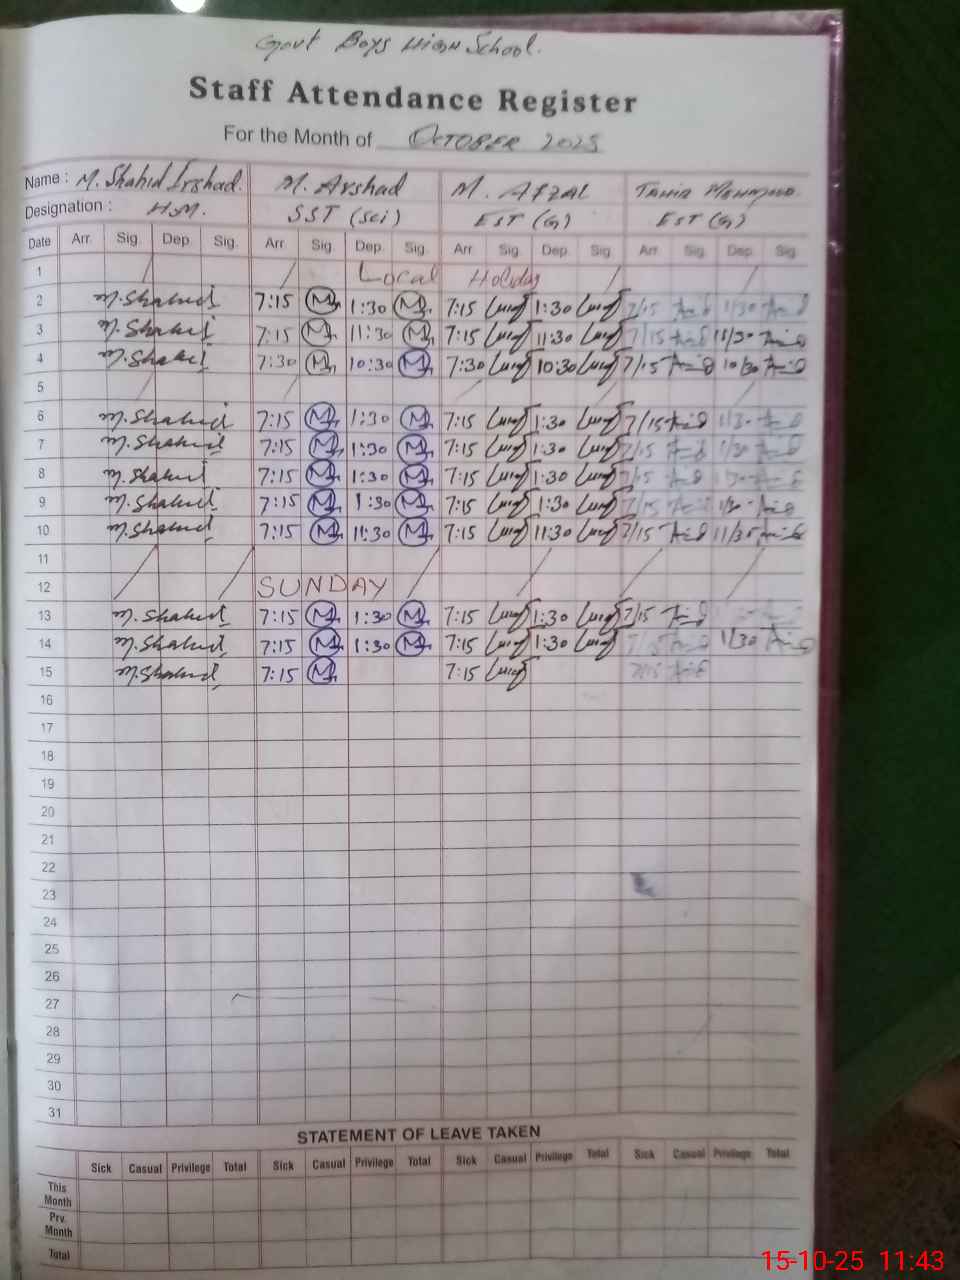 Govt Boys High School.
Staff Attendance Register
For the Month of OCTOBER 2025
Name : M. Shahid Irshad. M. Arshad M. AFZAL TAHIR MEHMOOD
Designation : H.M. SST (Sci) EST (G) EST (G)
Date Arr. Sig. Dep. Sig. Arr Sig. Dep. Sig. Arr Sig. Dep. Sig. Arr Sig. Dep. Sig.
1 Local Holiday
2 M.Shahid 7:15 M 1:30 M 7:15 1:30 7/15 1/30
3 M.Shahid 7:15 M 11:30 M 7:15 11:30 7/15 11/30
4 M.Shahid 7:30 M 10:30 M 7:30 10:30 7/15 10/30
5
6 M.Shahid 7:15 M 1:30 M 7:15 1:30 7/15 1/30
7 M.Shahid 7:15 M 1:30 M 7:15 1:30 7/15 1/30
8 M.Shahid 7:15 M 1:30 M 7:15 1:30 7/15
9 M.Shahid 7:15 M 1:30 M 7:15 1:30 7/15
10 M.Shahid 7:15 M 11:30 M 7:15 11:30 7/15
11
12 SUNDAY
13 M.Shahid 7:15 M 1:30 M 7:15 1:30 7/15
14 M.Shahid 7:15 M 1:30 M 7:15 1:30 7/15 1/30
15 M.Shahid 7:15 M 7:15 7/15
16
17
18
19
20
21
22
23
24
25
26
27
28
29
30
31
STATEMENT OF LEAVE TAKEN
Sick Casual Privilege Total Sick Casual Privilege Total Sick Casual Privilege Total Sick Casual Privilege Total
This
Month
Prv.
Month
Total
15-10-25 11:43